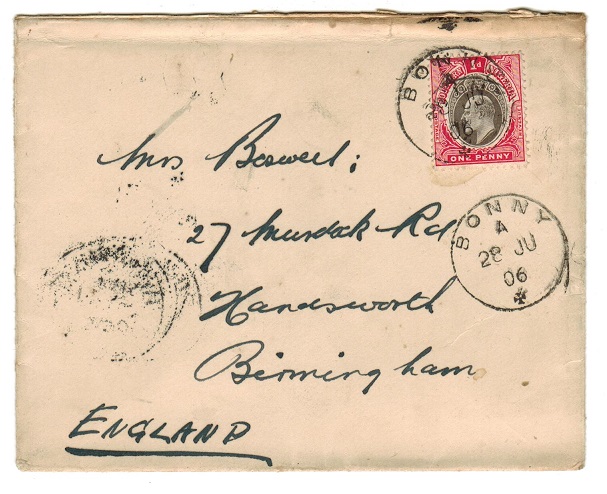 BONNY
06
1d
NIGERIA
ONE PENNY
Mrs Boswell;
27 Murdock Rd.
Handsworth
Birmingham
ENGLAND
BONNY
A
28 JU
06